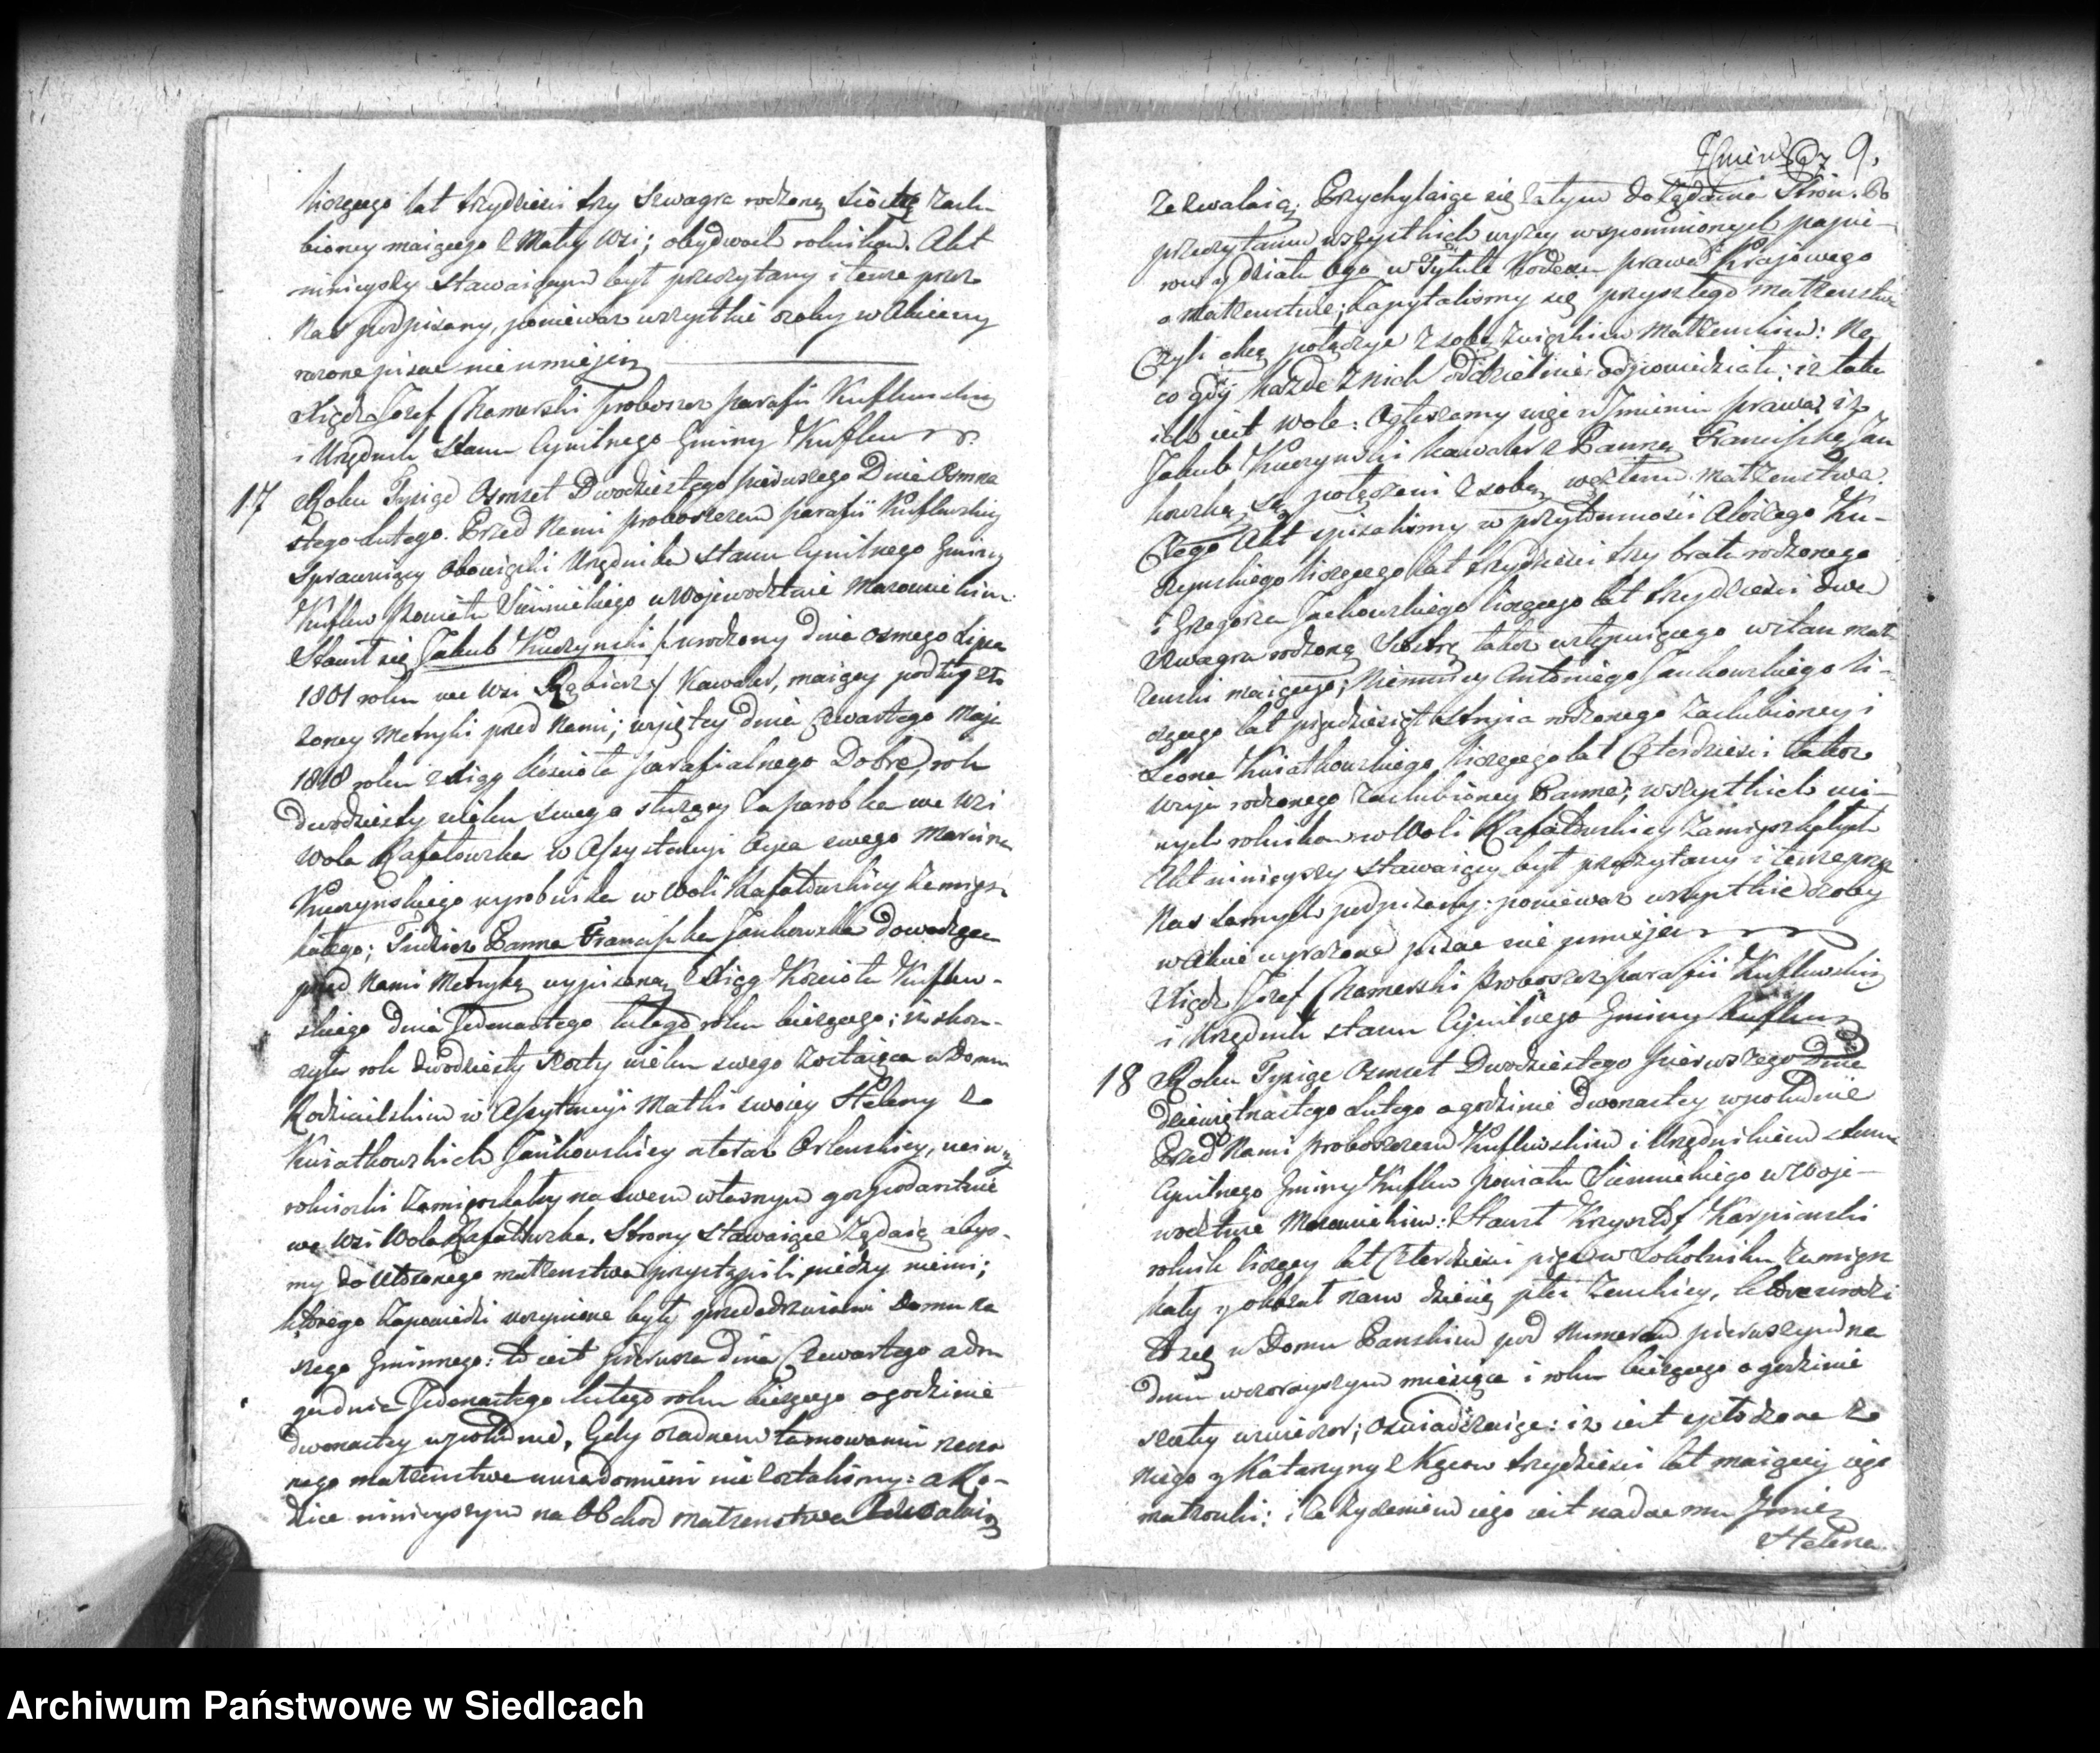 liczącego lat trzydzieści trzy szwagra rodzoną Siostrę Zaślu-
bioney maiącego z Małey Wsi; obydwoch rolnikow. Akt
ninieyszy stawaiącym był przeczytany i tenże przez
Nas podpisany, ponieważ wszystkie osoby w Akcie wy
rażone pisać nie umieją
Xiądz Jozef Chamerski Proboszcz parafii Kuflewskiey
i Urzędnik Stanu Cywilnego Gminy Kuflew
17 Roku Tysiąc Osmset Dwudziestego pierwszego Dnia Osmna
stego Lutego. Przed Nami proboszczem parafii Kuflewskiey
Sprawuiący Obowiązki Urzędnika stanu Cywilnego Gminy
Kuflew Powiatu Siennickiego w Wojewodztwie Mazowieckim.
Stawił się Jakub Kuczynski /urodzony dnia osmego Lipca
1801 roku we Wsi / Kawaler, maiący podług zło
żoney Metryki przed Nami; wyiętey dnia czwartego Maja
1818 roku z Xiąg Kościoła parafialnego Dobre, rok
Dwudziesty wieku swego służący za parobka we Wsi
Wola Rafałowska w Assystencyi Oyca swego Marcina
Kuczynskiego wyrobnika w Woli Rafałowskiey zamiesz-
kałego; Tudzież Panna Franciszka Jankowska dowodząca
przed Nami Metryką wypisaną z Xiąg Kościoła Kuflew-
skiego dnia Jedenastego lutego roku bieżącego; iż skoń-
czyła rok dwudziesty szosty wieku swego zostaiąca w Domu
Rodzicielskim w Assystencyi Matki swoiey Heleny z
Kwiatkowskich Jankowskiey a teraz Orlenskiey,
rolniczki zamieszkałey na swem własnym gospodarstwie
we Wsi Wola Rafałowska. Strony stawaiące żądaią aby-
my do ułożonego małżeństwa przystąpili między niemi;
którego zapowiedzi uczynione były przededrzwiami Domu na
szego Gminnego: to iest pierwsza dnia Czwartego a dru
ga dnia Jedenastego lutego roku bieżącego o godzinie
dwonastey w południe. Gdy o żadnem tamowaniu rzeczo
nego małżeństwa uwiadomieni nie zostaliśmy: a Ro-
dzice ninieyszym na Obchod małżenstwa zezwalaią
9.
zezwalaią. Przychylaiąc się zatym do żądania Stron. Po
przeczytaniu wszystkich wyżey wspomnionych papie-
row y działu 6go w Tytule Kodexu prawa Krajowego
o małżenstwie; zapytaliśmy się przyszłego małżeństwa
Czyli chcą połączyć z sobą związkiem małżeńskim: Na
co gdy każde z nich oddzielnie odpowiedziało; iż taka
ich iest wola: Ogłaszamy więc w Imieniu prawa; iż
Jakub Kuczynski Kawaler z Panną Franciszką Jan
kowską, są połączeni z sobą węzłem małżenstwa.
Czego Akt spisaliśmy w przytomności Alożego Ku-
czynskiego liczącego lat trzydzieści trzy brata rodzonego
i Grzegorza Jackowskiego liczącego lat trzydzieści dwa
szwagra rodzoną Siostrę także wstępuiącego w stan mał
żenski maiącego; Niemniey Antoniego Jankowskiego li-
czącego lat pięćdziesiąt stryia rodzonego Zaślubioney i
Leona Kwiatkowskiego liczącego lat Czterdzieści także
wuja rodzonego Zaślubioney Panna; wszystkich in-
nych rolnikow w Woli Rafałowskiey zamieszkałych
Akt ninieyszy stawaiącey był przeczytany i tenże przez
Nas samych podpisany: ponieważ wszystkie osoby
w Akcie wyrażone pisać nie umieją
Xiądz Jozef Chamerski Proboszcz parafii Kuflewskiey
i Urzędnik stanu Cywilnego Gminy Kuflew
18 Roku Tysiąc Osmset Dwudziestego pierwszego Dnia
dziewiętnastego Lutego o godzinie dwonastey w południe
Przed Nami Proboszczem Kuflewskim i Urzędnikiem stanu
Cywilnego Gminy Kuflew Powiatu Siennickiego w Woje-
wodztwie Mazowieckim: Stawił Krzysztof Karpinski
rolnik liczący lat Czterdzieści pięć w Sokolniku zamiesz
kały y okazał nam dziecię płci żenskiey, które urodzi
ło się w Domu Pańskim pod Numerem pierwszym na
dniu wczorayszym miesiąca i roku bieżącego o godzinie
szostey wieczor; oświadczaiąc: iż iest spłodzone z
niego y Katarzyny z Kęcow trzydzieści lat maiącey iego
małżonki: i że życzeniem iego iest nadać mu Imię
Helena.
Archiwum Państwowe w Siedlcach